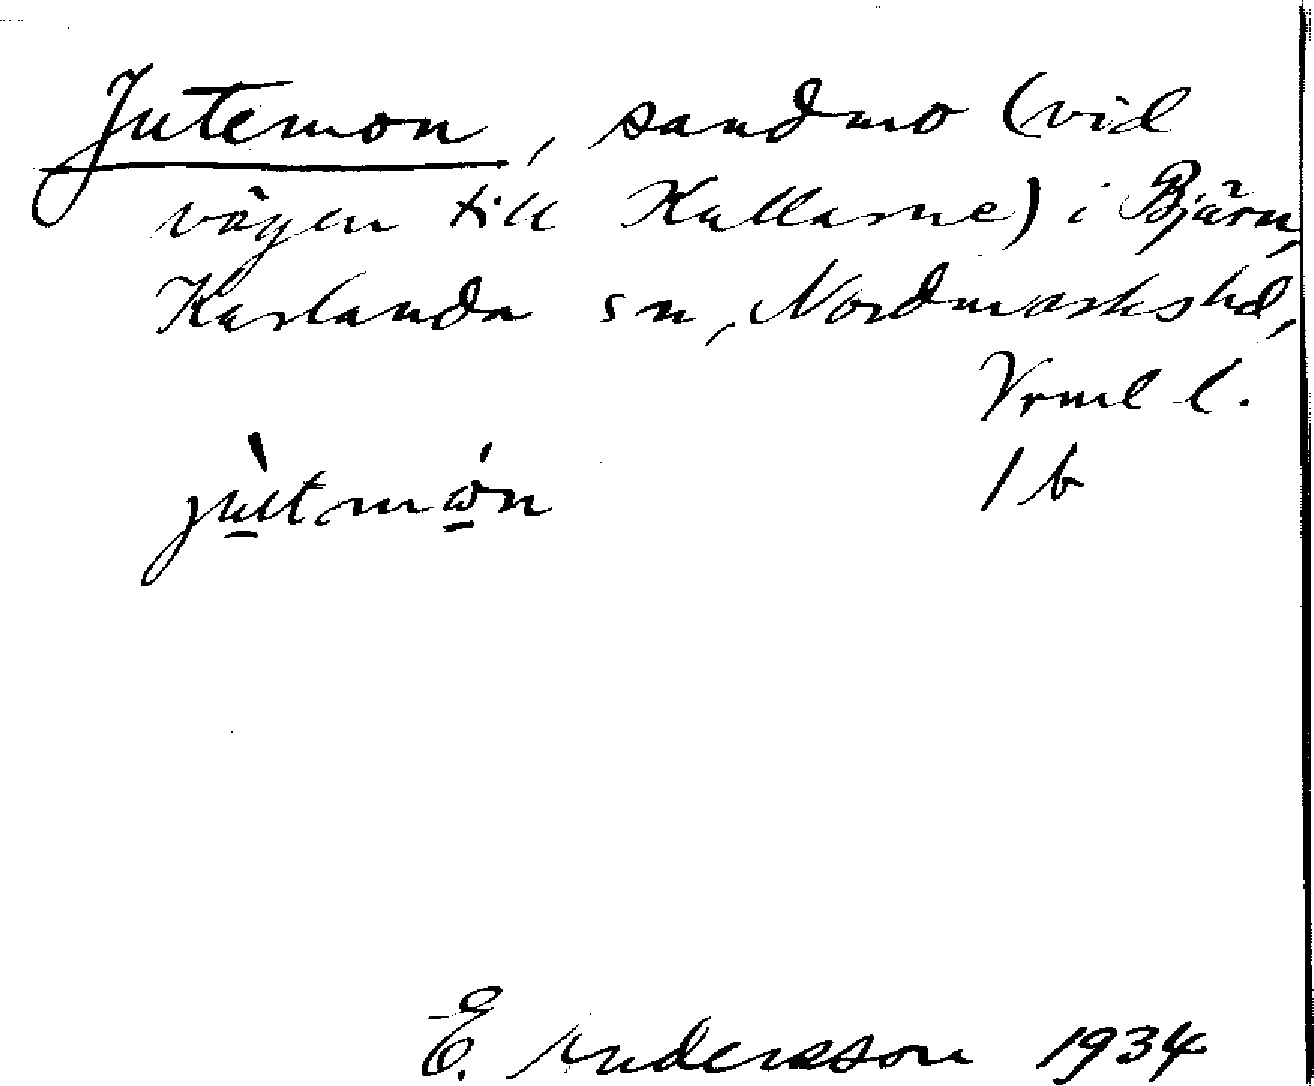 Jutemon, sandmo (vid
vägen till Kullarne) i Bjärn,
Karlanda sn, Nordmarks hd,
Vrml l.
jùtmón 1 b
E. Andersson 1934